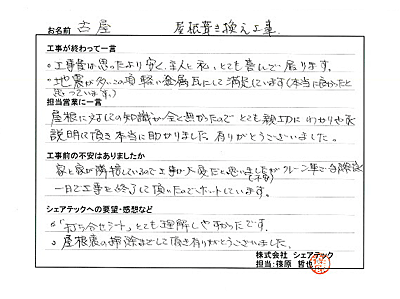 お名前 古屋 屋根葺き換え工事
工事が終わって一言
。工事費は思ったより安く、主人と私、とても喜んで居ります。
。地震が多いこの頃軽い金属瓦にして満足しています(本当に良かったと
思っています。)
担当営業に一言
屋根に対しての知識が全く無かったので とても親切に わかりやすく
説明して頂き本当に助かりました。有りがとうございました。
工事前の不安はありましたか
家と家が隣接しているので工事が大変だと思いましたがクレーン車で
一日で工事を終了して頂いたのでホットしています。
シェアテックへの要望・感想など
。「打ち合せシート」とても理解しやすかったです。
。屋根裏の掃除までして頂き有りがとうございました。
株式会社 シェアテック
担当:篠原 哲也